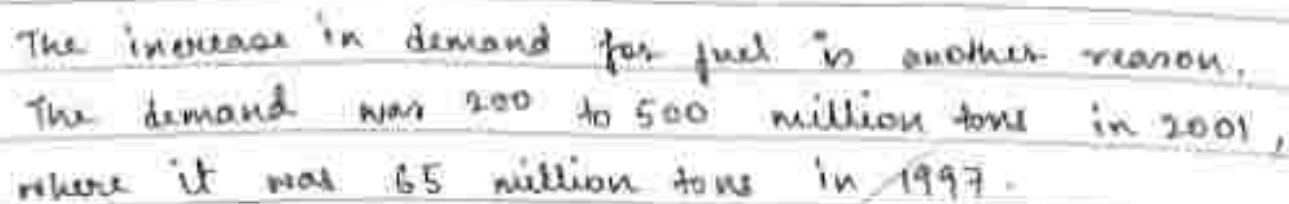 The increase in demand for fuel is another reason.
The demand was 200 to 500 million tons in 2001,
where it was 65 million tons in 1997.